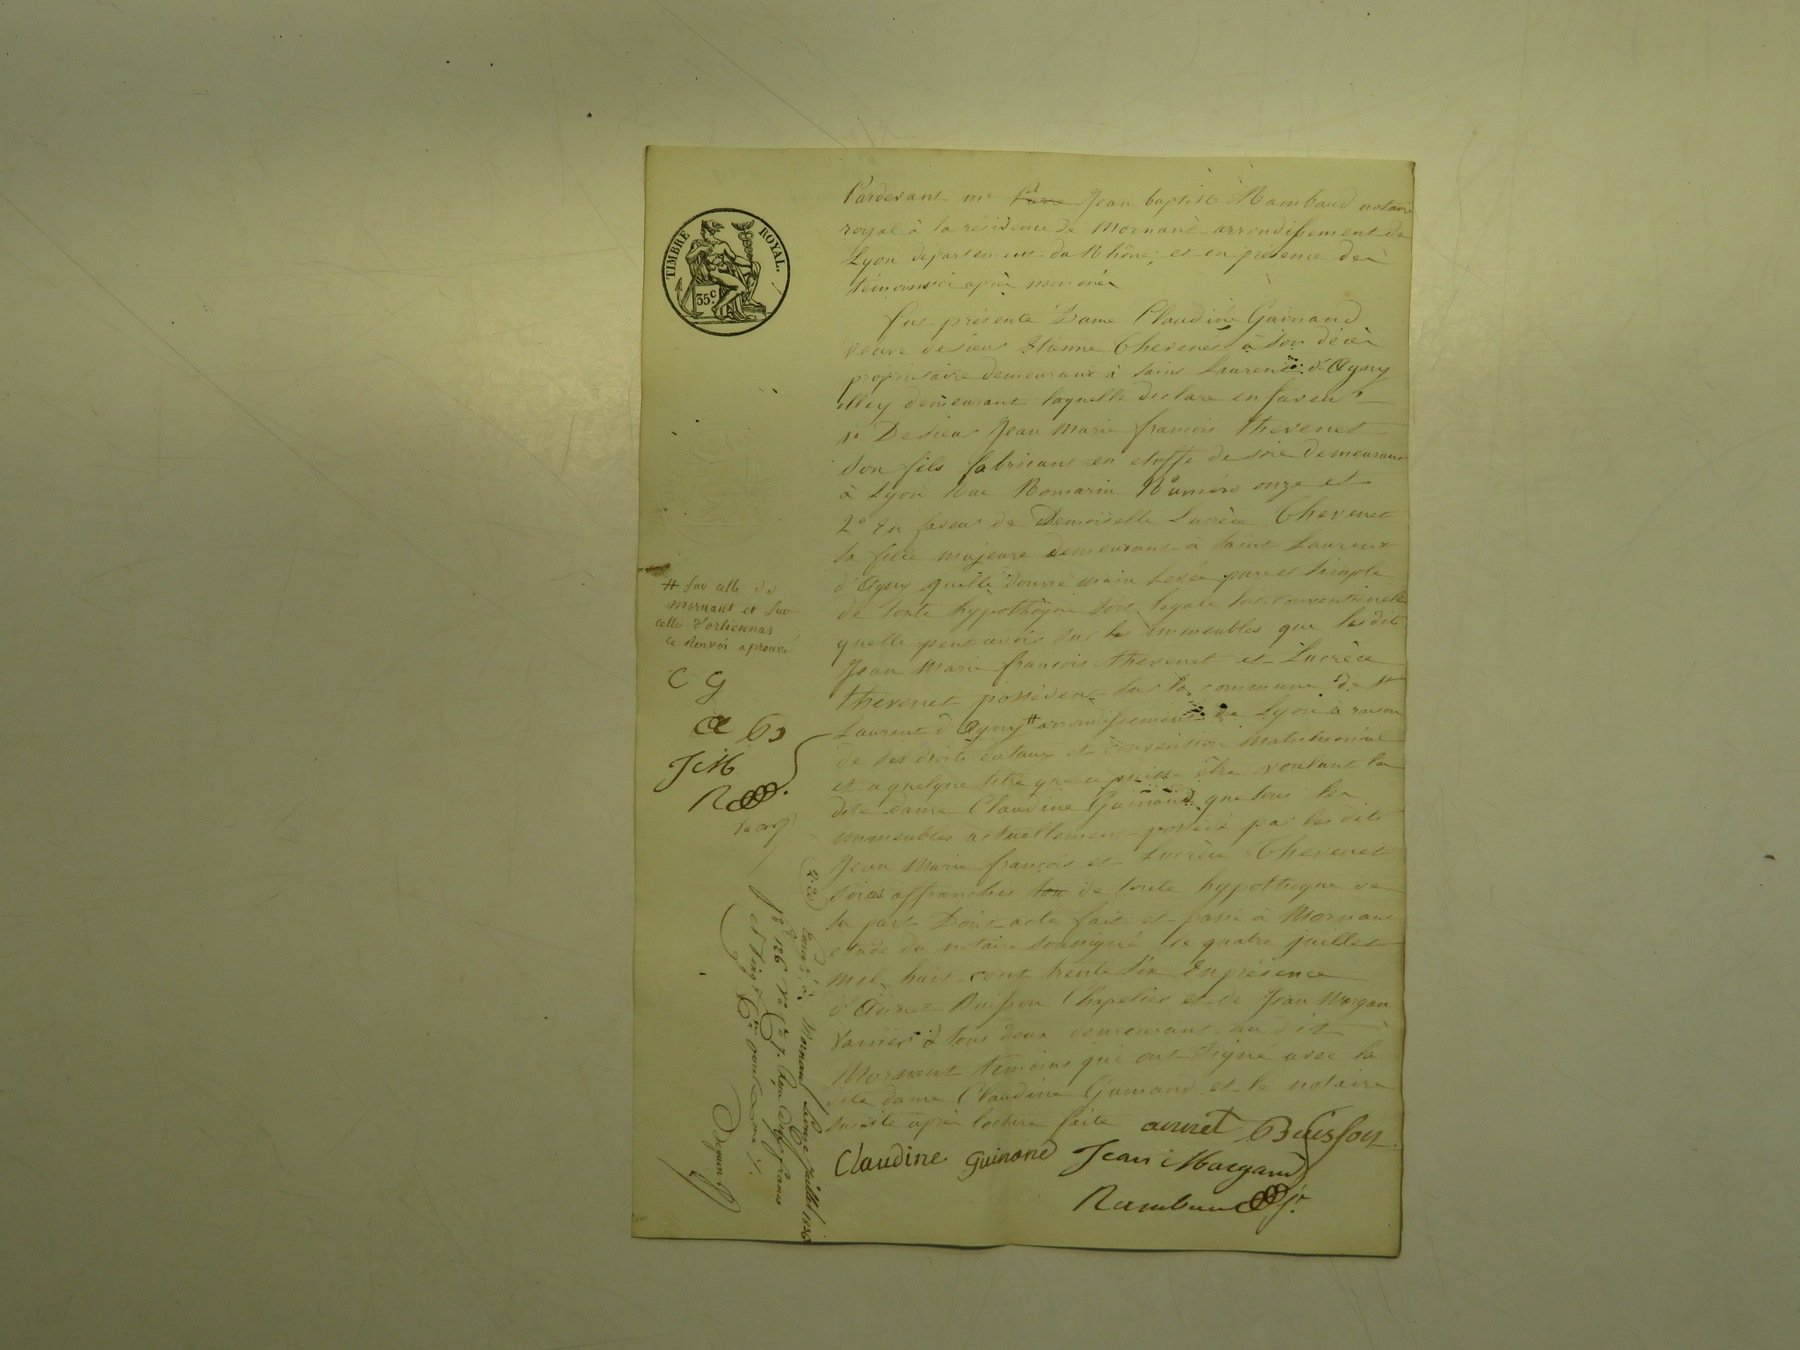 TIMBRE ROYAL.
35c
Pardevant me Jean baptiste Rambaud notaire
royal à la résidence de Mornant arrondissement de
Lyon département du Rhône, et en présence des
témoins ci après nommés
fut présente Dame Claudine Guinand
veuve de sieur Etienne Thevenet à son décès
propriétaire demeurant à Saint Laurent d'Agny
elle y demeurant laquelle déclare en faveur
1o De sieur Jean Marie françois thevenet
son fils fabricant en etoffe de soie demeurant
à Lyon Rue Romarin Numéro onze et
2o En faveur de Demoiselle Lucrèce Thevenet
sa fille majeure demeurant à Saint Laurent
d'Agny quelle donne main levée pure et simple
de toute hypothèque soit légale soit conventionelle
quelle peut avoir sur les immeubles que lesdit
Jean Marie françois thevenet et Lucrèce
thevenet possèdent sur la commune de St
Laurent d'Agny # arrondissement de Lyon à raison
de ses droits dotaux et convention matrimonial
et a quelque titre que ce puisse être voulant la
dite dame Claudine Guinand que tous les
immeubles actuellement possédé par les dits
Jean Marie françois et Lucrèce Thevenet
soient affranchis de toute hypothèque de
sa part Dont acte fait et passé à Mornant
etude du notaire soussigné le quatre juillet
mil huit cent trente six En présence
d'Annet Buisson Chapelier et de Jean Margan
vanier tous deux demeurant au dit
Mornant témoins qui ont signé avec la
dite dame Claudine Guinand et le notaire
susdite après lecture faite
annet Buisson
Claudine Guinand Jean Margand
Rambaud jr
# sur celle de
Mornant et sur
celle d'orliennas
ce Renvoi aprouvé
C G
a B
J M
R
Enregé à Mornant le onze juillet 1836
fo 126 Vo Ce 7. Reçu deux francs
et vingt Ces pour